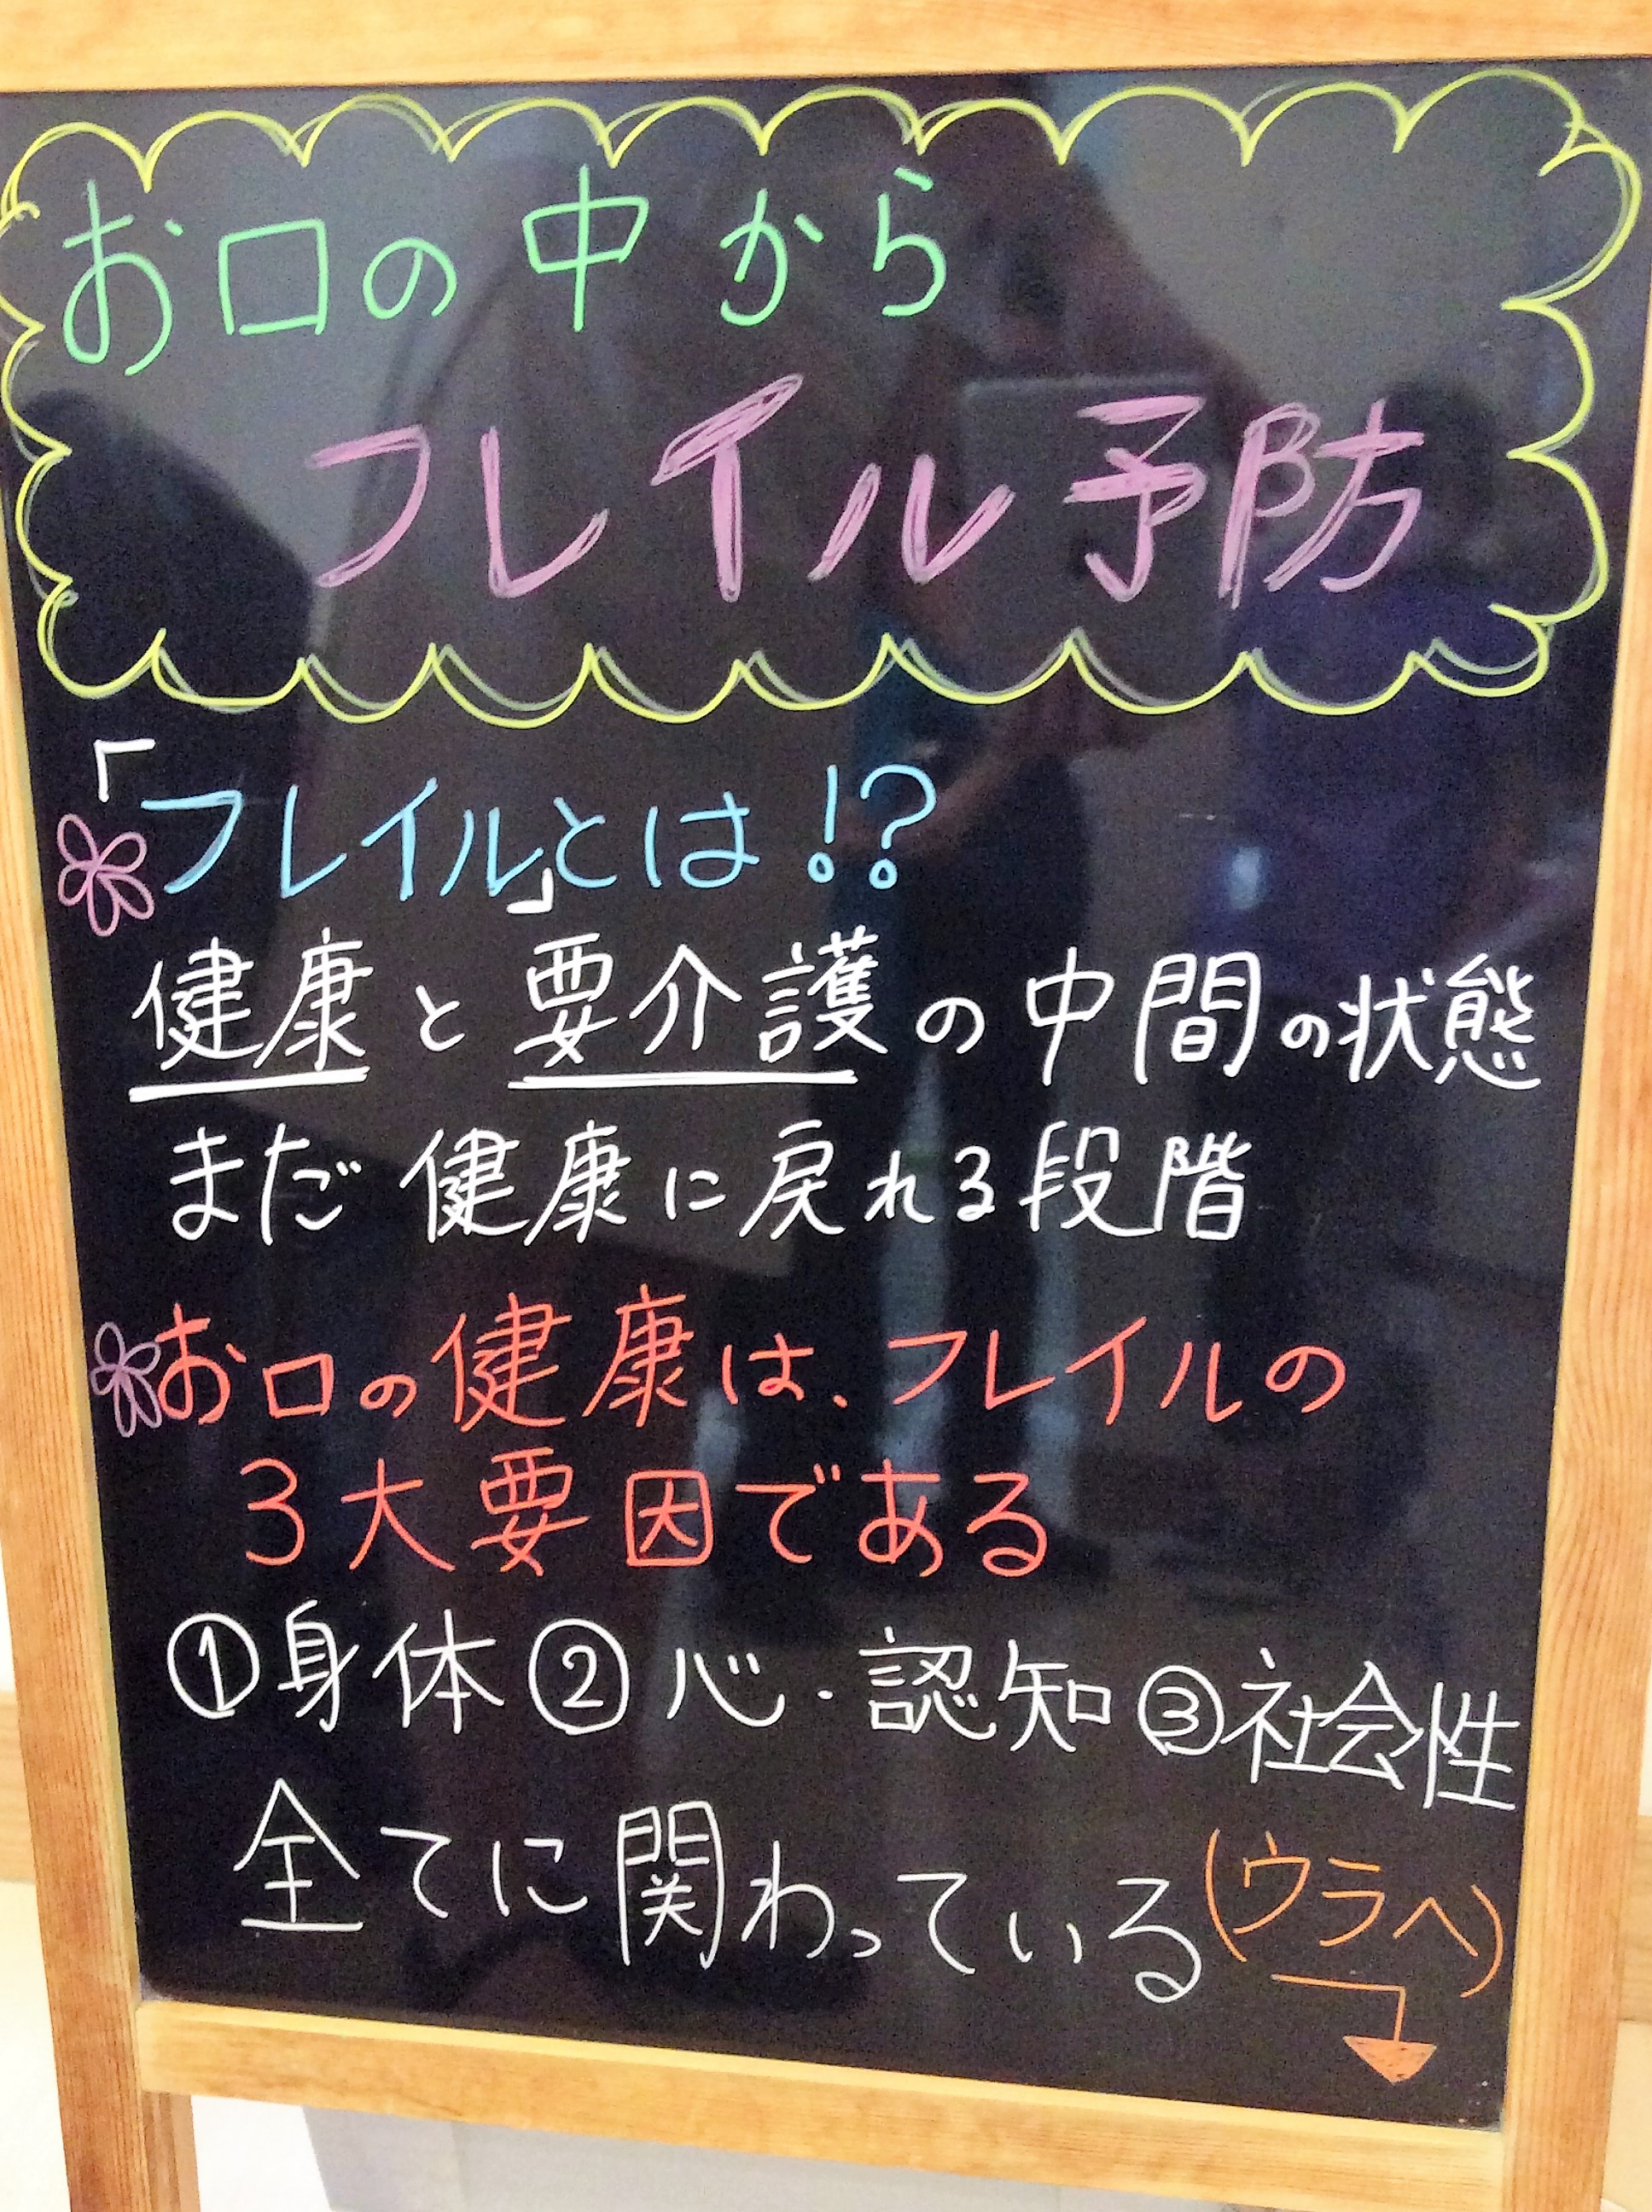 お口の中から
フレイル予防
「フレイル」とは!?
健康と要介護の中間の状態
まだ健康に戻れる段階
お口の健康は、フレイルの
3大要因である
①身体②心・認知③社会性
全てに関わっている(ウラへ)